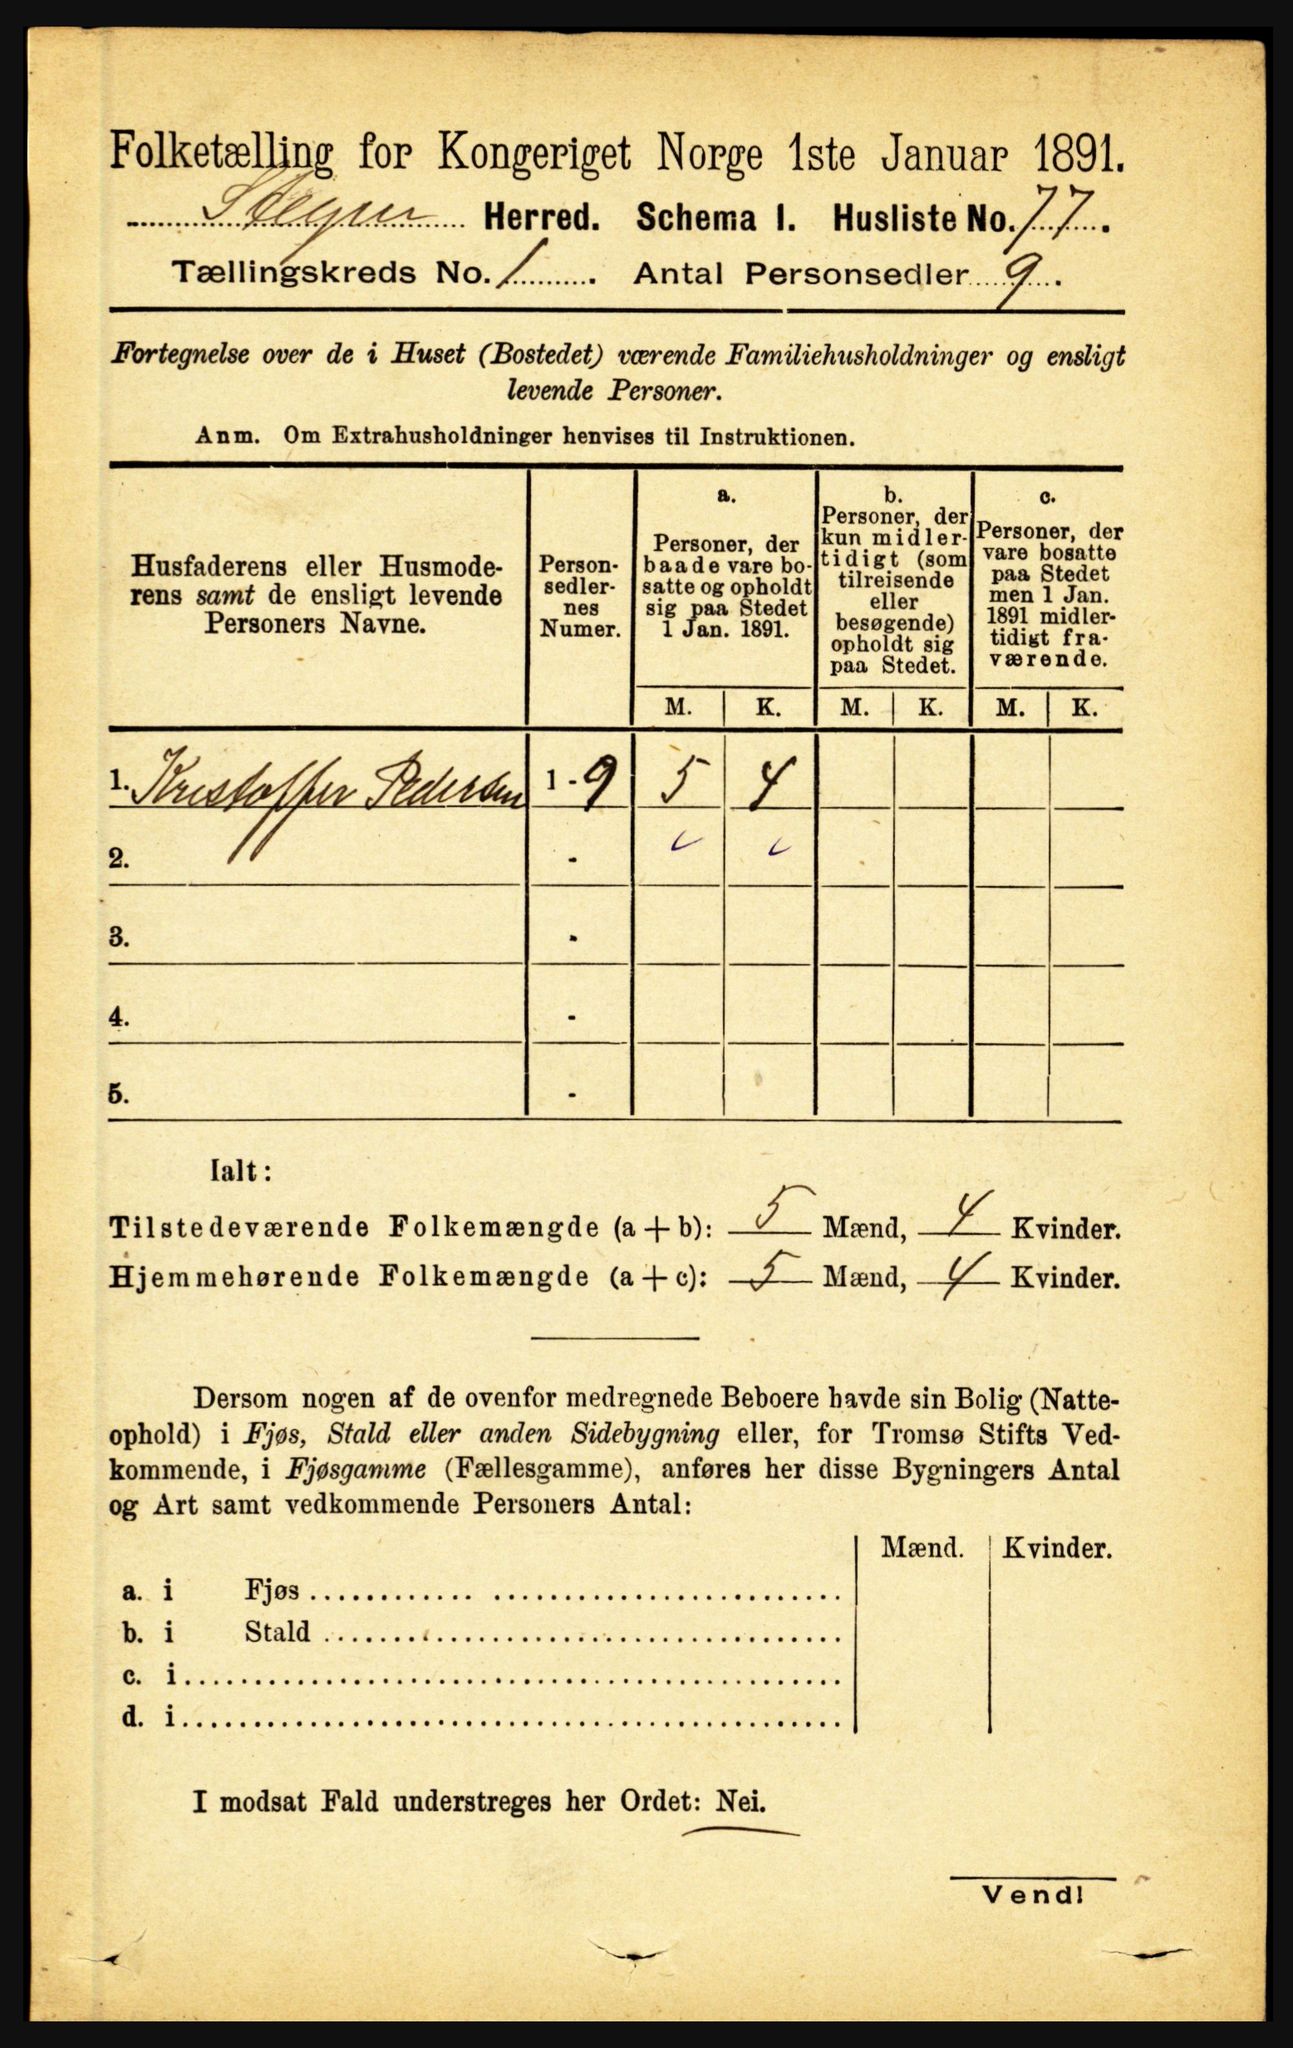 Folketælling for Kongeriget Norge 1ste Januar 1891.
Herred. Schema 1. Husliste No. 77.
Tællingskreds No. 1. Antal Personsedler 9.
Fortegnelse over de i Huset (Bostedet) værende Familiehusholdninger og ensligt
levende Personer.
Anm. Om Extrahusholdninger henvises til Instruktionen.
Husfaderens eller Husmode-
rens samt de ensligt levende
Personers Navne.
Person-
sedler-
nes
Numer.
a.
Personer, der
baade vare bo-
satte og opholdt
sig paa Stedet
1 Jan. 1891.
b.
Personer, der
kun midler-
tidigt (som
tilreisende
eller
besøgende)
opholdt sig
paa Stedet.
c.
Personer, der
vare bosatte
paa Stedet
men 1 Jan.
1891 midler-
tidigt fra-
værende.
M. K. M. K. M. K.
1. Kristoffer Pedersen 1 - 9 5 4
2. -
3. -
4. -
5. -
Ialt:
Tilstedeværende Folkemængde (a + b): 5 Mænd, 4 Kvinder.
Hjemmehørende Folkemængde (a + c): 5 Mænd, 4 Kvinder.
Dersom nogen af de ovenfor medregnede Beboere havde sin Bolig (Natte-
ophold) i Fjøs, Stald eller anden Sidebygning eller, for Tromsø Stifts Ved-
kommende, i Fjøsgamme (Fællesgamme), anføres her disse Bygningers Antal
og Art samt vedkommende Personers Antal:
Mænd. Kvinder.
a. i Fjøs
b. i Stald
c. i
d. i
I modsat Fald understreges her Ordet: Nei.
Vend!